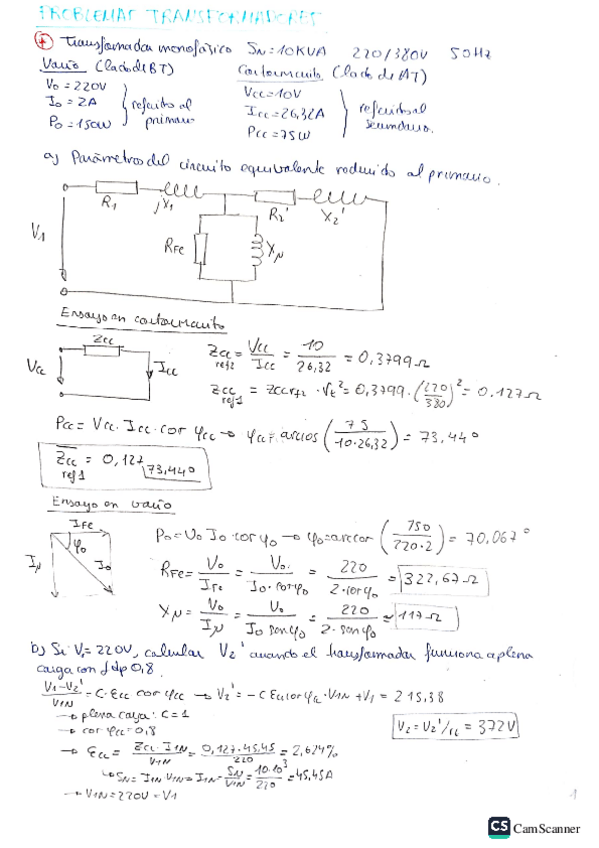 PROBLEMAS TRANSFORMADORES
① Transformador monofásico SN=10KVA 220/380V 50Hz
Vacío (Lado de BT) Cortocircuito (Lado de AT)
V0 = 220V
I0 = 2A
P0 = 150W
referido al primario
Vcc=10V
Icc=26,32A
Pcc=75W
referidos al secundario.
a) Parámetros del circuito equivalente reducido al primario.
R1 jX1 R2' X2'
V1 RFe Xμ
Ensayo en cortocircuito
Zcc
Vcc Icc
Zcc ref2 = Vcc/Icc = 10/26,32 = 0,3799Ω
Zcc ref1 = Zccrf2 · rt² = 0,3799 · (220/380)² = 0,127Ω
Pcc = Vcc · Icc · cos φcc → φcc = arccos (75/10·26,32) = 73,44º
Zcc ref1 = 0,127 73,44º
Ensayo en vacío
IFe
φ0
Iμ I0
P0 = U0 I0 cos φ0 → φ0 = arccos (150/220·2) = 70,067º
RFe = V0/IFe = V0/I0·cosφ0 = 220/2·cosφ0 = 322,67Ω
Xμ = V0/Iμ = U0/I0 senφ0 = 220/2·senφ0 = 117Ω
b) Si V1 = 220V, calcular V2' cuando el transformador funciona a plena
carga con fdp 0,8.
V1-V2'/V1N = C·Ecc cos φcc → V2' = -C Ecc cosφcc · V1N + V1 = 215,38
→ plena carga: C=1
→ cos φcc = 0,8
V2 = V2'/rt = 372V
→ Ecc = Zcc · I1N/V1N = 0,127·45,45/220 = 2,624%
↳ SN = I1N V1N → I1N = SN/V1N = 10·10³/220 = 45,45A
→ V1N = 220V = V1
1
CS CamScanner